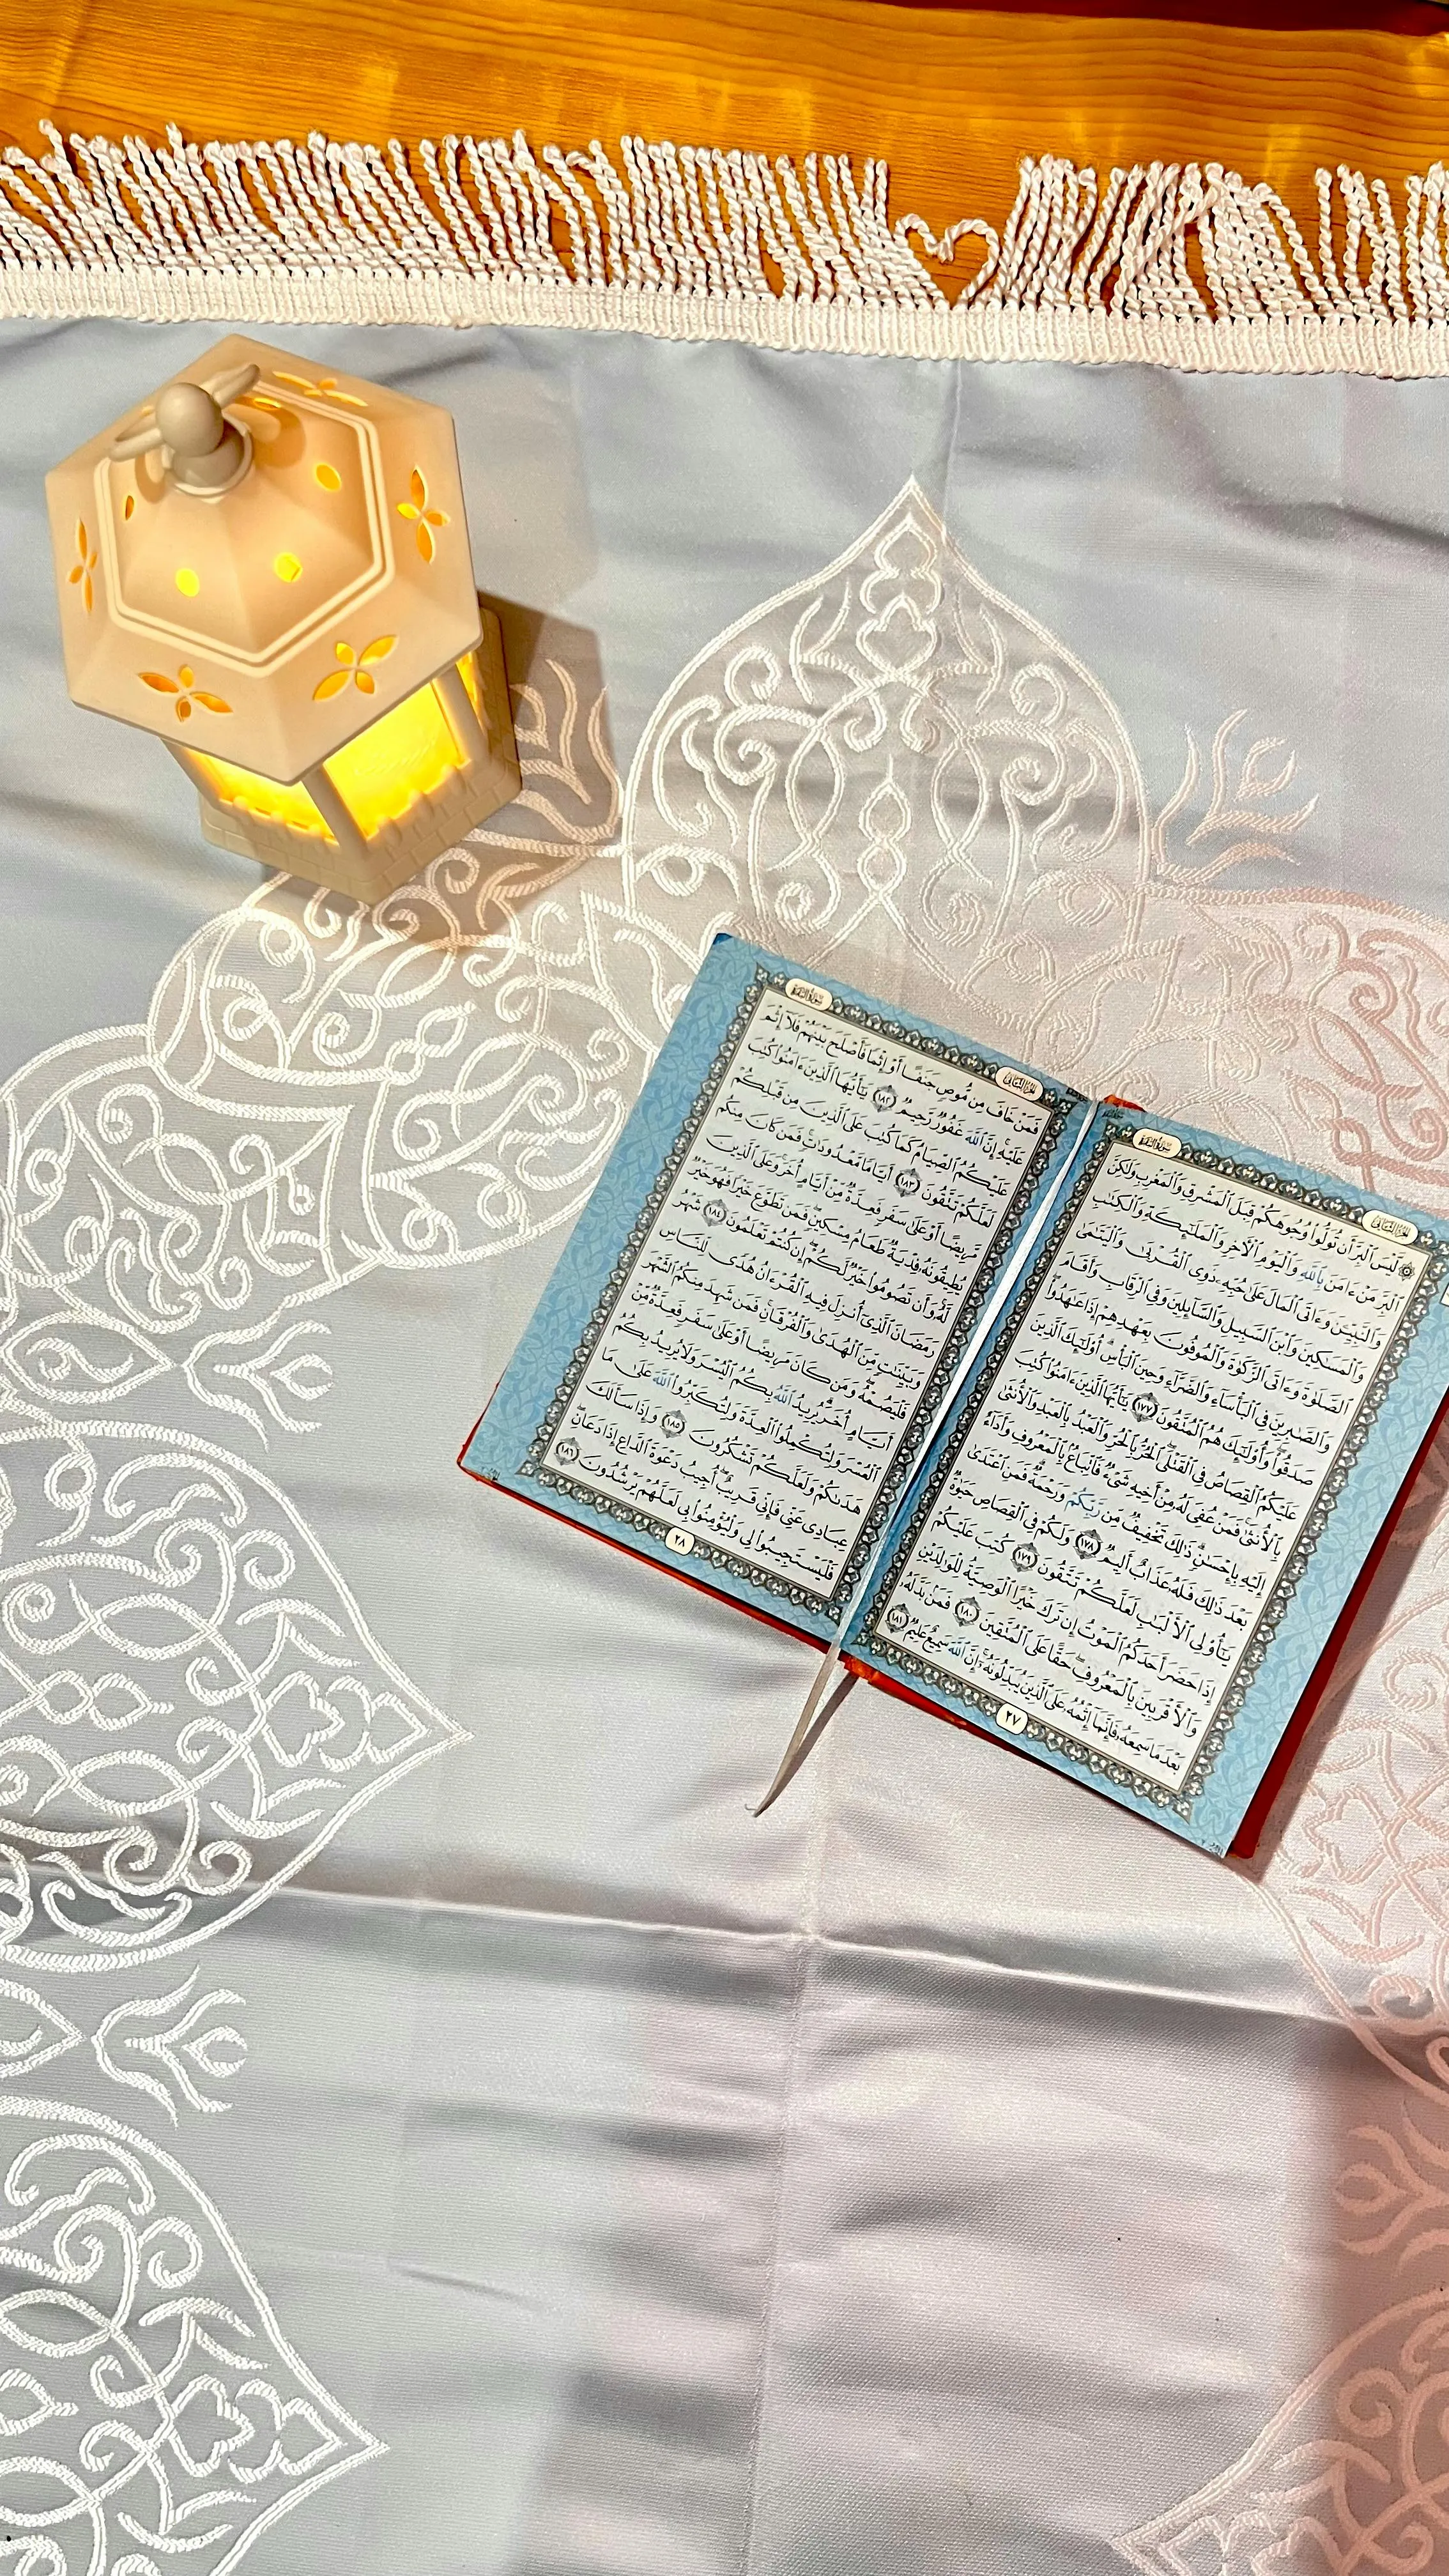 سُورَةُ البَقَرَةِ
الجُزْءُ الثَّانِي
۞ لَّيْسَ ٱلْبِرَّ أَن تُوَلُّوا۟ وُجُوهَكُمْ قِبَلَ ٱلْمَشْرِقِ وَٱلْمَغْرِبِ وَلَٰكِنَّ
ٱلْبِرَّ مَنْ ءَامَنَ بِٱللَّهِ وَٱلْيَوْمِ ٱلْءَاخِرِ وَٱلْمَلَٰٓئِكَةِ وَٱلْكِتَٰبِ
وَٱلنَّبِيِّـۧنَ وَءَاتَى ٱلْمَالَ عَلَىٰ حُبِّهِۦ ذَوِى ٱلْقُرْبَىٰ وَٱلْيَتَٰمَىٰ
وَٱلْمَسَٰكِينَ وَٱبْنَ ٱلسَّبِيلِ وَٱلسَّآئِلِينَ وَفِى ٱلرِّقَابِ وَأَقَامَ
ٱلصَّلَوٰةَ وَءَاتَى ٱلزَّكَوٰةَ وَٱلْمُوفُونَ بِعَهْدِهِمْ إِذَا عَٰهَدُوا۟
وَٱلصَّٰبِرِينَ فِى ٱلْبَأْسَآءِ وَٱلضَّرَّآءِ وَحِينَ ٱلْبَأْسِ أُو۟لَٰٓئِكَ ٱلَّذِينَ
صَدَقُوا۟ وَأُو۟لَٰٓئِكَ هُمُ ٱلْمُتَّقُونَ ١٧٧ يَٰٓأَيُّهَا ٱلَّذِينَ ءَامَنُوا۟ كُتِبَ
عَلَيْكُمُ ٱلْقِصَاصُ فِى ٱلْقَتْلَى ٱلْحُرُّ بِٱلْحُرِّ وَٱلْعَبْدُ بِٱلْعَبْدِ وَٱلْأُنثَىٰ
بِٱلْأُنثَىٰ فَمَنْ عُفِىَ لَهُۥ مِنْ أَخِيهِ شَىْءٌ فَٱتِّبَاعٌۢ بِٱلْمَعْرُوفِ وَأَدَآءٌ
إِلَيْهِ بِإِحْسَٰنٍ ذَٰلِكَ تَخْفِيفٌ مِّن رَّبِّكُمْ وَرَحْمَةٌ فَمَنِ ٱعْتَدَىٰ
بَعْدَ ذَٰلِكَ فَلَهُۥ عَذَابٌ أَلِيمٌ ١٧٨ وَلَكُمْ فِى ٱلْقِصَاصِ حَيَوٰةٌ
يَٰٓأُو۟لِى ٱلْأَلْبَٰبِ لَعَلَّكُمْ تَتَّقُونَ ١٧٩ كُتِبَ عَلَيْكُمْ
إِذَا حَضَرَ أَحَدَكُمُ ٱلْمَوْتُ إِن تَرَكَ خَيْرًا ٱلْوَصِيَّةُ لِلْوَٰلِدَيْنِ
وَٱلْأَقْرَبِينَ بِٱلْمَعْرُوفِ حَقًّا عَلَى ٱلْمُتَّقِينَ ١٨٠ فَمَنۢ بَدَّلَهُۥ
بَعْدَ مَا سَمِعَهُۥ فَإِنَّمَآ إِثْمُهُۥ عَلَى ٱلَّذِينَ يُبَدِّلُونَهُۥٓ إِنَّ ٱللَّهَ سَمِيعٌ عَلِيمٌ ١٨١
٢٧
الجُزْءُ الثَّانِي
سُورَةُ البَقَرَةِ
فَمَنْ خَافَ مِن مُّوصٍ جَنَفًا أَوْ إِثْمًا فَأَصْلَحَ بَيْنَهُمْ فَلَآ إِثْمَ
عَلَيْهِ إِنَّ ٱللَّهَ غَفُورٌ رَّحِيمٌ ١٨٢ يَٰٓأَيُّهَا ٱلَّذِينَ ءَامَنُوا۟ كُتِبَ
عَلَيْكُمُ ٱلصِّيَامُ كَمَا كُتِبَ عَلَى ٱلَّذِينَ مِن قَبْلِكُمْ
لَعَلَّكُمْ تَتَّقُونَ ١٨٣ أَيَّامًا مَّعْدُودَٰتٍ فَمَن كَانَ مِنكُم
مَّرِيضًا أَوْ عَلَىٰ سَفَرٍ فَعِدَّةٌ مِّنْ أَيَّامٍ أُخَرَ وَعَلَى ٱلَّذِينَ
يُطِيقُونَهُۥ فِدْيَةٌ طَعَامُ مِسْكِينٍ فَمَن تَطَوَّعَ خَيْرًا فَهُوَ خَيْرٌ
لَّهُۥ وَأَن تَصُومُوا۟ خَيْرٌ لَّكُمْ إِن كُنتُمْ تَعْلَمُونَ ١٨٤ شَهْرُ
رَمَضَانَ ٱلَّذِىٓ أُنزِلَ فِيهِ ٱلْقُرْءَانُ هُدًى لِّلنَّاسِ
وَبَيِّنَٰتٍ مِّنَ ٱلْهُدَىٰ وَٱلْفُرْقَانِ فَمَن شَهِدَ مِنكُمُ ٱلشَّهْرَ
فَلْيَصُمْهُ وَمَن كَانَ مَرِيضًا أَوْ عَلَىٰ سَفَرٍ فَعِدَّةٌ مِّنْ
أَيَّامٍ أُخَرَ يُرِيدُ ٱللَّهُ بِكُمُ ٱلْيُسْرَ وَلَا يُرِيدُ بِكُمُ
ٱلْعُسْرَ وَلِتُكْمِلُوا۟ ٱلْعِدَّةَ وَلِتُكَبِّرُوا۟ ٱللَّهَ عَلَىٰ مَا
هَدَىٰكُمْ وَلَعَلَّكُمْ تَشْكُرُونَ ١٨٥ وَإِذَا سَأَلَكَ
عِبَادِى عَنِّى فَإِنِّى قَرِيبٌ أُجِيبُ دَعْوَةَ ٱلدَّاعِ إِذَا دَعَانِ
فَلْيَسْتَجِيبُوا۟ لِى وَلْيُؤْمِنُوا۟ بِى لَعَلَّهُمْ يَرْشُدُونَ ١٨٦
٢٨